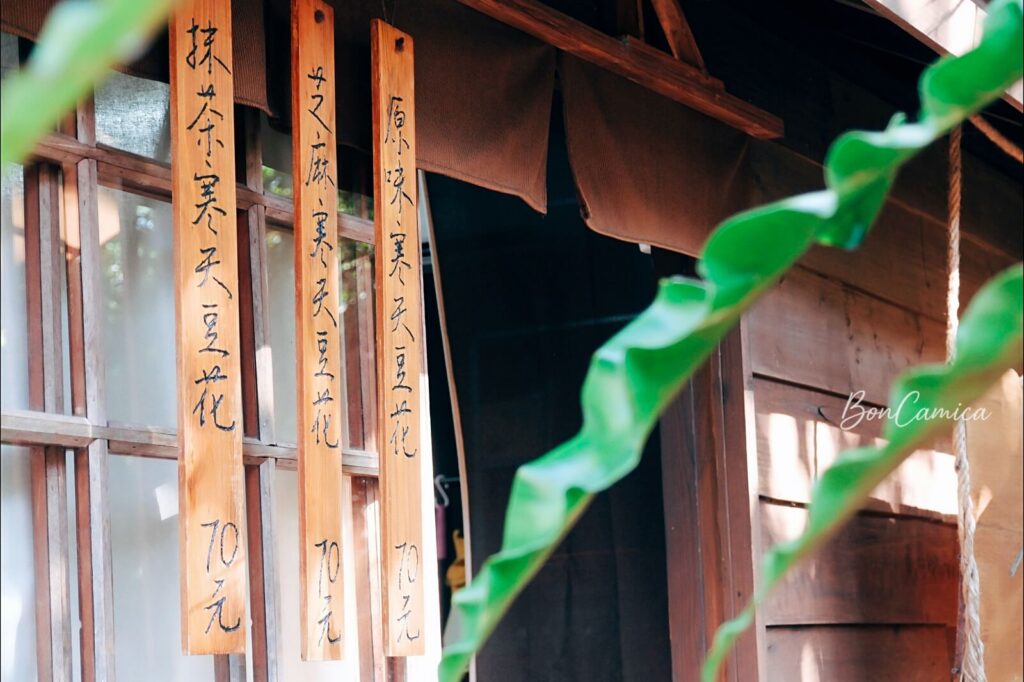 抹茶寒天豆花 70元
芝麻寒天豆花 70元
原味寒天豆花 70元
BonCamica